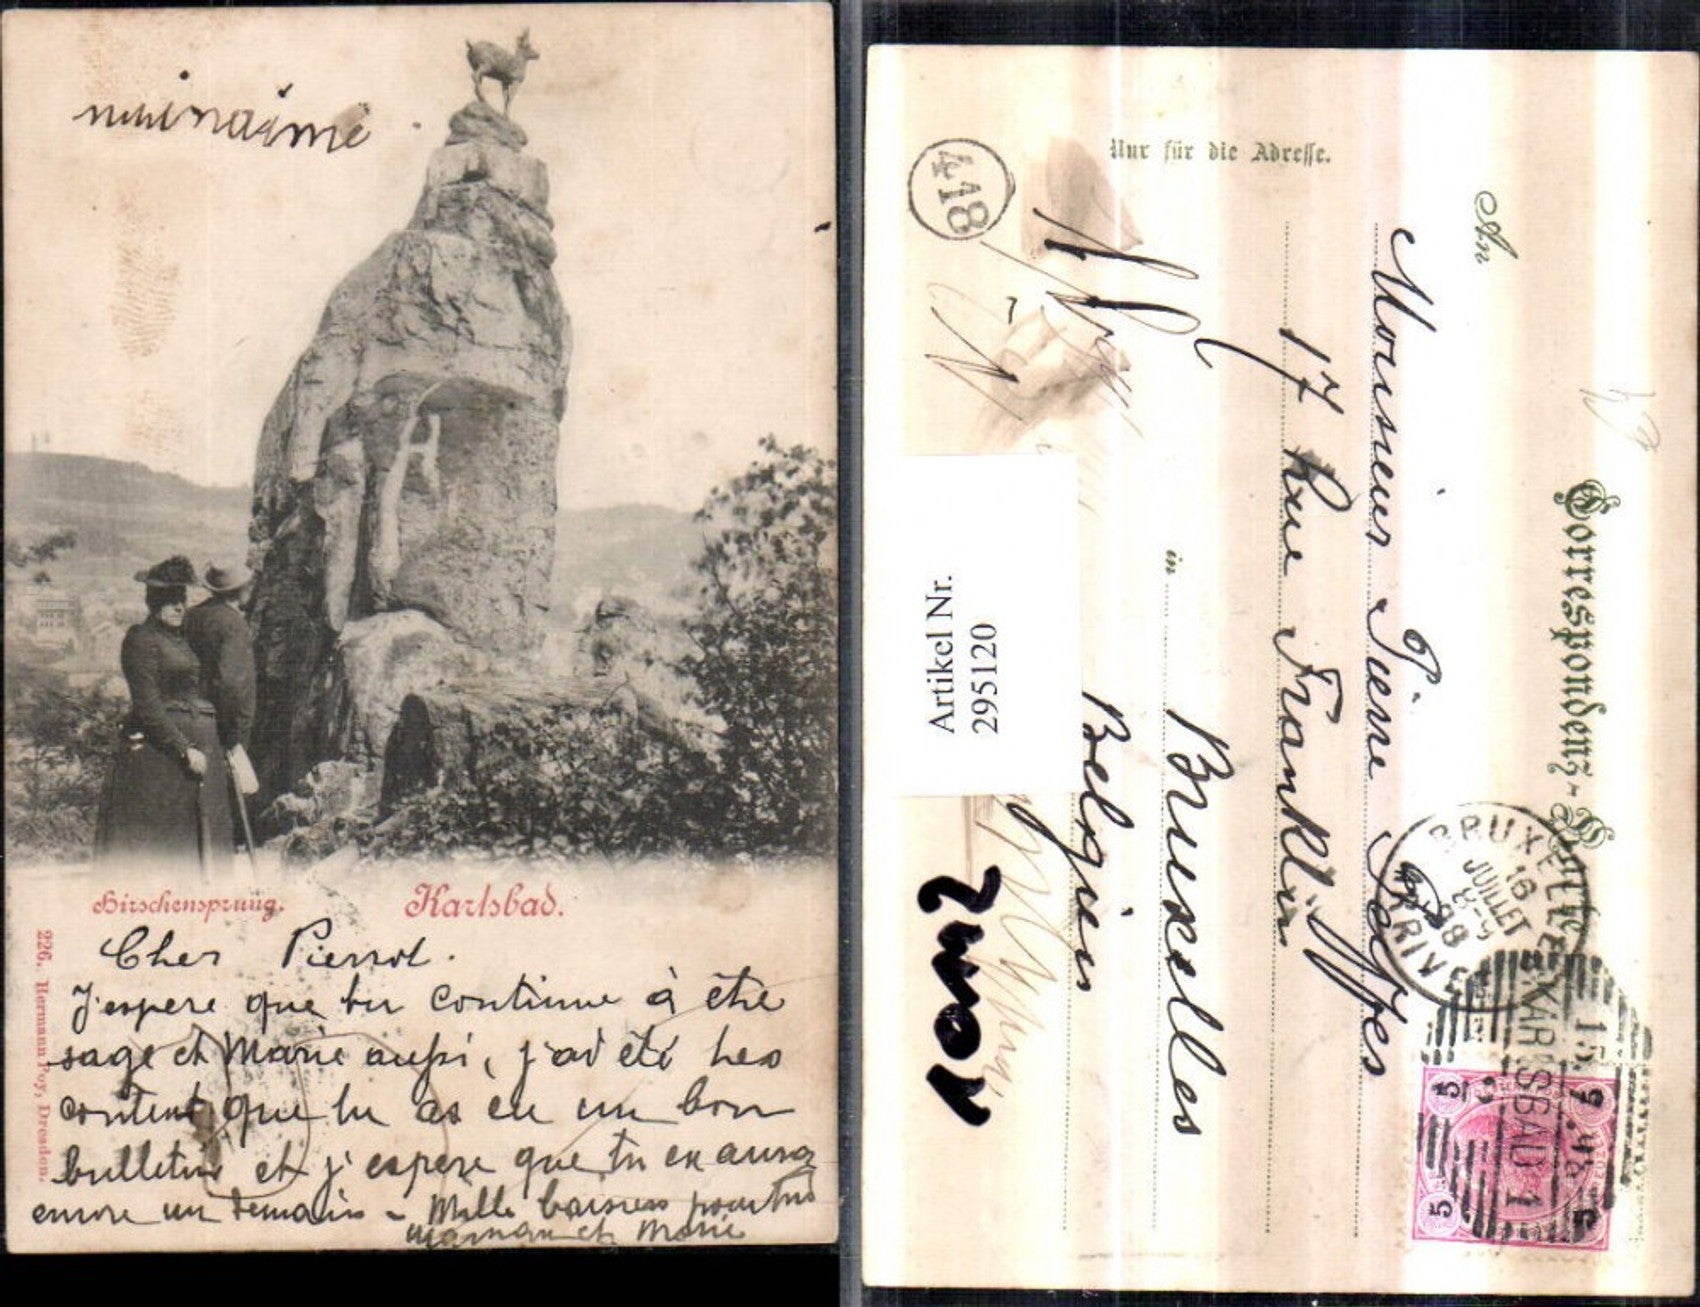 Hirschensprung.
Karlsbad.
226. Hermann Poy, Dresden.
Cher Pierrot.
J'espere que tu continue à être
sage et Marie aussi, j'ai été tres
content que tu as eu un bon
bulletin et j'espere que tu en auras
encore un demain - Mille baisers pour tous
maman et Marie
Correspondenz-Karte
An
Nur für die Adresse.
Monsieur Pierre
17 Rue Franklin
in Bruxelles
Belgien
418
BRUXELLES
16
JUILLET
8-9
98
ARRIVÉE
KARLSBAD 1
15. 7. 98
5
5
5
5
Artikel Nr.
295120